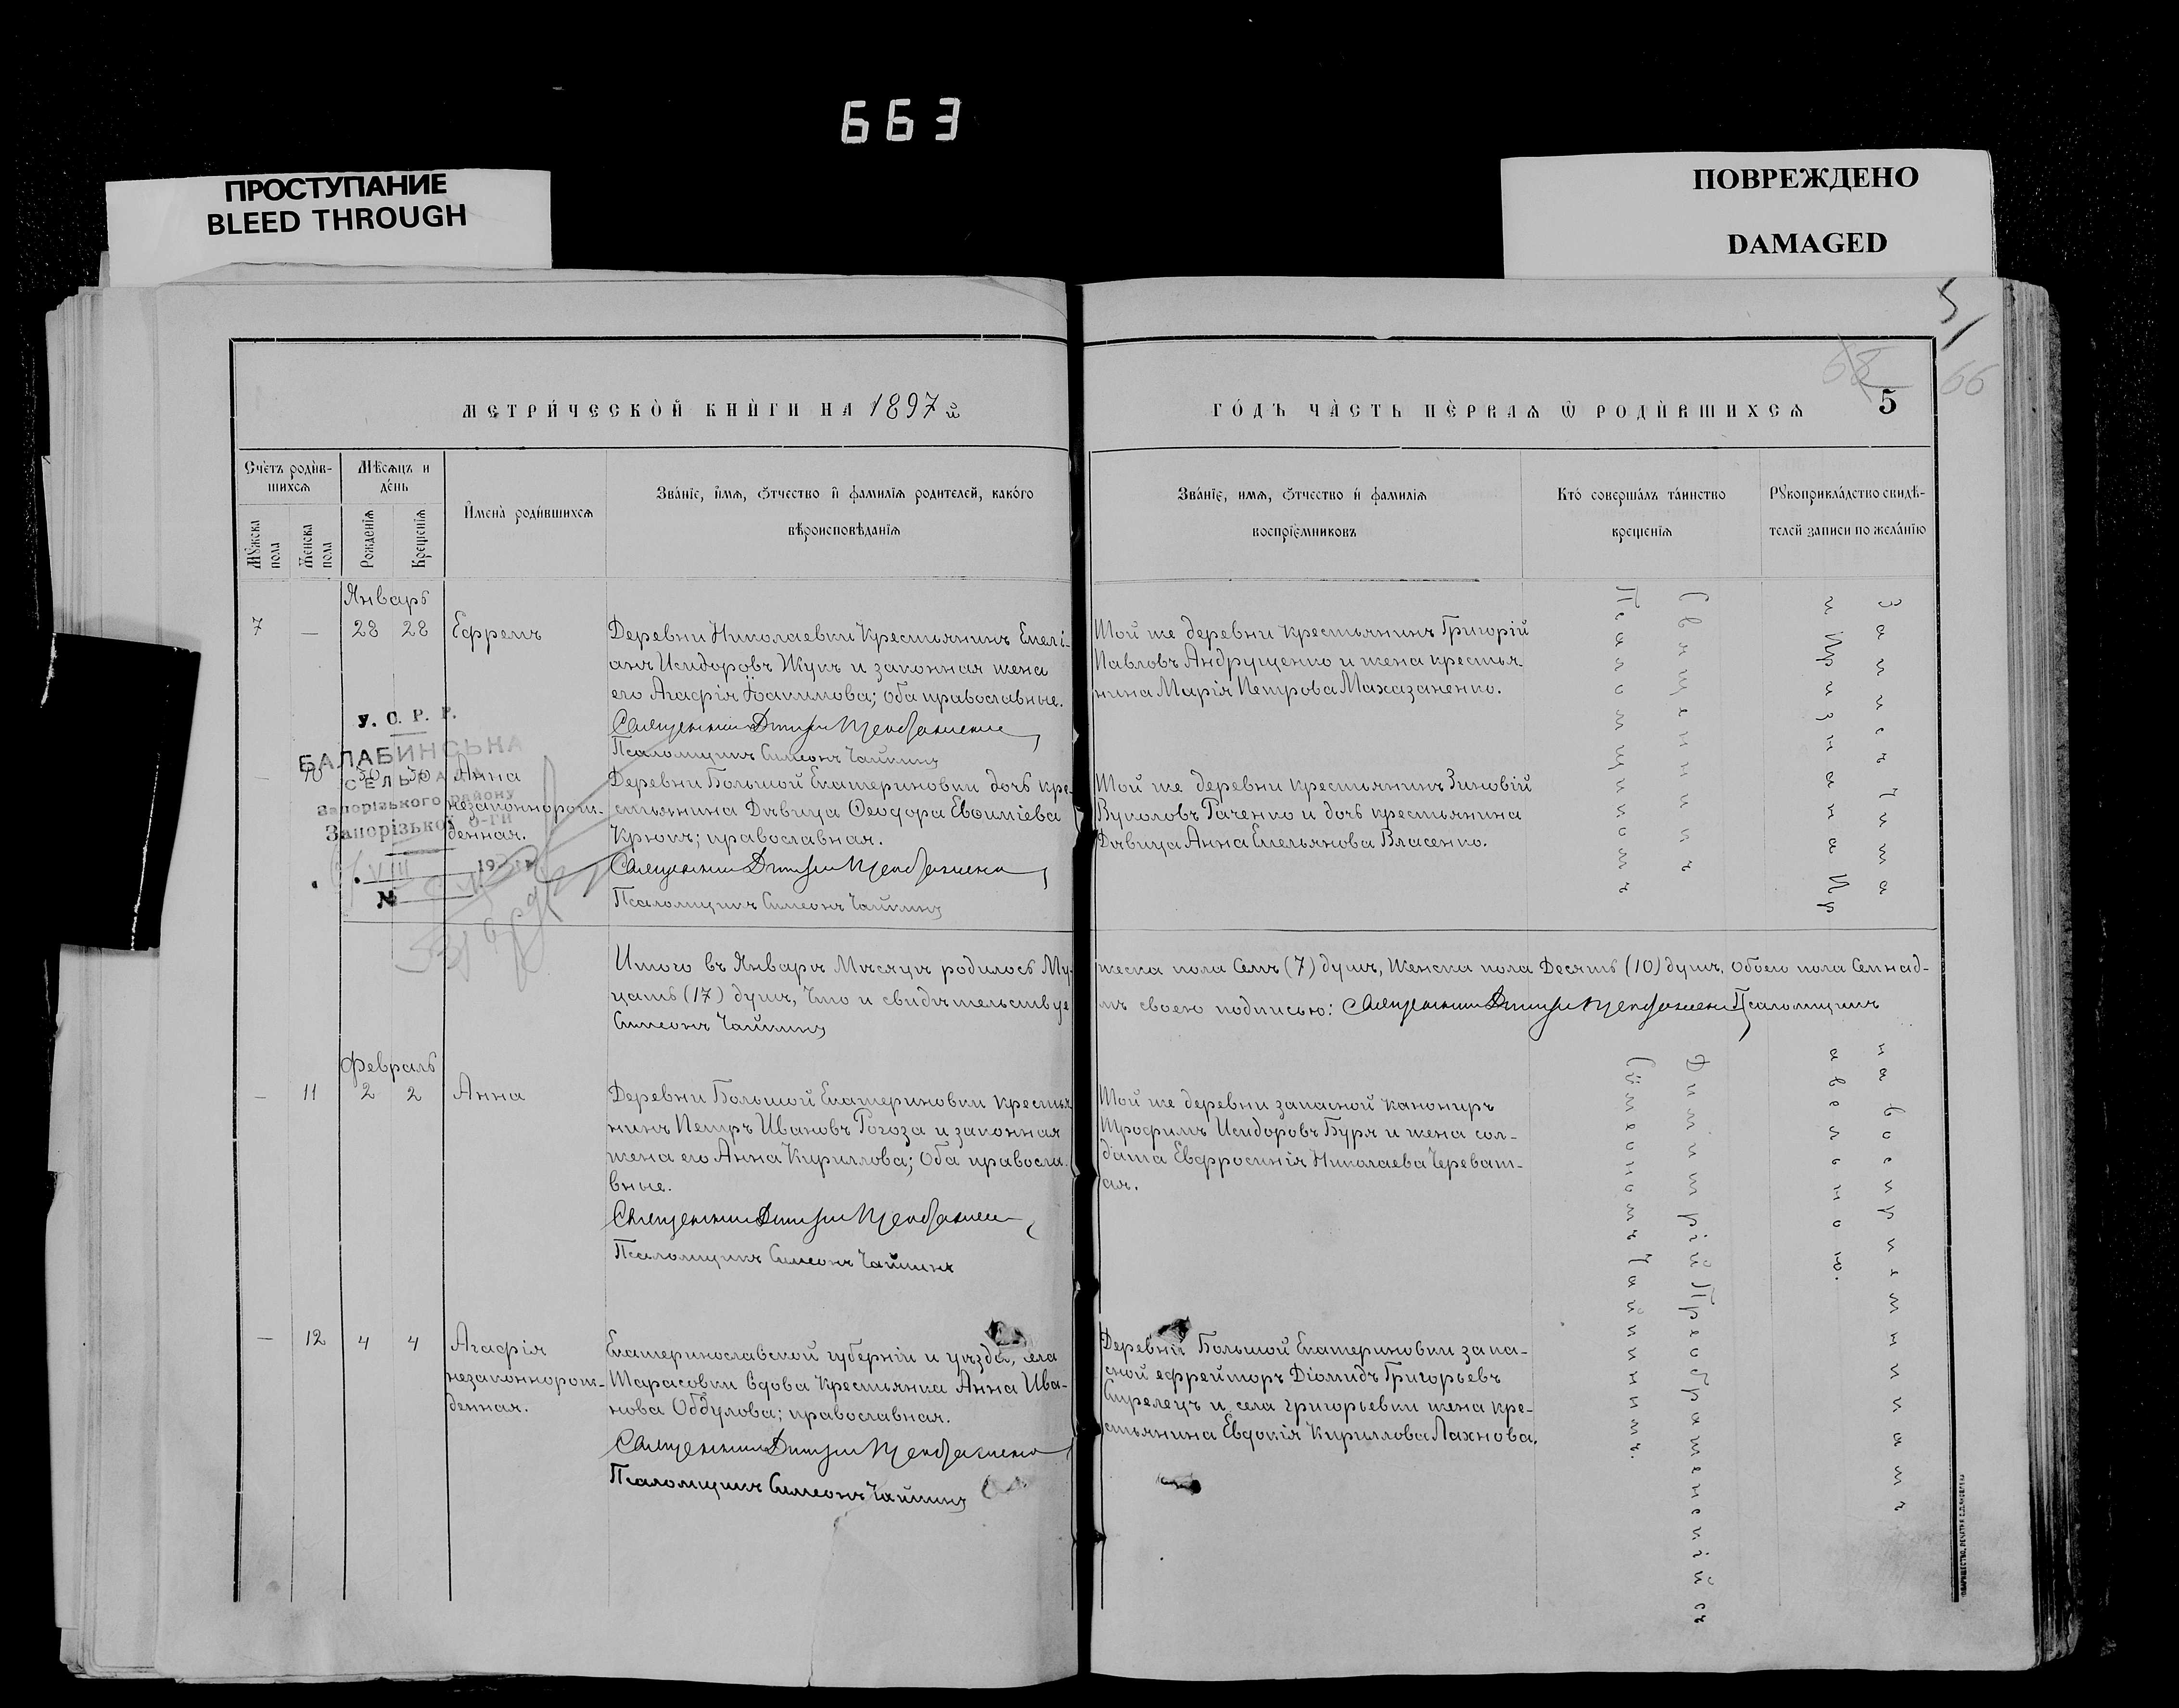 663
ПРОСТУПАНИЕ
BLEED THROUGH
ПОВРЕЖДЕНО
DAMAGED
5
68
66
МЕТРИ́ЧЕСКОЙ КНИ́ГИ НА 1897 й
ГО́ДЪ ЧА́СТЬ ПЕ́РВАѦ Ѿ РОДИ́ВШИХСѦ 5
Сче́тъ роди́в-
шихсѧ
Мѣ́сѧцъ и
де́нь
Мꙋжеска
пола
Женска
пола
Рожденїѧ
Крещенїѧ
Имена̀ роди́вшихсѧ
Зва́нїе, и́мѧ, ѻ́тчество и҆ фамилїѧ родителей, како́го
вѣроисповѣданїѧ
Зва́нїе, имѧ, ѻ́тчество и҆ фамилїѧ
воспрїемниковъ
Кто̀ соверша́лъ та́инство
крещенїѧ
Рꙋкоприкла́дство свидѣ́-
телей записи по жела́нїю
Январь
7 — 28 28 Ефремъ
Деревни Николаевки Крестьянинъ Емелі-
анъ Исидоровъ Жукъ и законная жена
его Агафія Іоакимова; оба православные.
Священникъ Димитрій Преображенскій
Псаломщикъ Симеонъ Чайкинъ
Той же деревни крестьянинъ Григорій
Павловъ Андрущенко и жена крестья-
нина Марія Петрова Махазаненко.
У. С. Р. Р.
БАЛАБИНСЬКА
СЕЛЬРАДА
Запорізького району
Запорізької о-ги
VIII 192
№
— 10 30 30 Анна
незаконнорож-
денная.
Деревни Большой Екатериновки дочь кре-
стьянина Дѣвица Ѳеодора Евѳиміева
Крюкъ; православная.
Священникъ Димитрій Преображенскій
Псаломщикъ Симеонъ Чайкинъ
Той же деревни крестьянинъ Зиновій
Вуколовъ Гаченко и дочь крестьянина
Дѣвица Анна Емельянова Власенко.
Итого въ Январѣ Мѣсяцѣ родилось Му-
жеска пола Семь (7) душъ, Женска пола Десять (10) душъ, Обоего пола Семнад-
цать (17) душъ, Что и свидѣтельствуе-
мъ своею подписью: Священникъ Димитрій Преображенскій Псаломщикъ
Симеонъ Чайкинъ
Февраль
— 11 2 2 Анна
Деревни Большой Екатериновки крестья-
нинъ Петръ Ивановъ Рогоза и законная
жена его Анна Кириллова; Оба правосла-
вные.
Священникъ Димитрій Преображенскій
Псаломщикъ Симеонъ Чайкинъ
Той же деревни запасной канониръ
Трофимъ Исидоровъ Буря и жена сол-
дата Евфросинія Николаева Череват-
ая.
— 12 4 4 Агафія
незаконнорож-
денная.
Екатеринославской губерніи и уѣзда, села
Тарасовки вдова Крестьянка Анна Ива-
нова Обдулова; православная.
Священникъ Димитрій Преображенскій
Псаломщикъ Симеонъ Чайкинъ
Деревни Большой Екатериновки запа-
сной ефрейторъ Діомидъ Григорьевъ
Стрелецъ и села Григорьевки жена кре-
стьянина Евдокія Кириллова Лахнова.
Священникъ Димитрій Преображенскій съ
Псаломщикомъ Симеономъ Чайкинымъ.
Запись Чита на воспріемникамъ
и Признана Правельною.